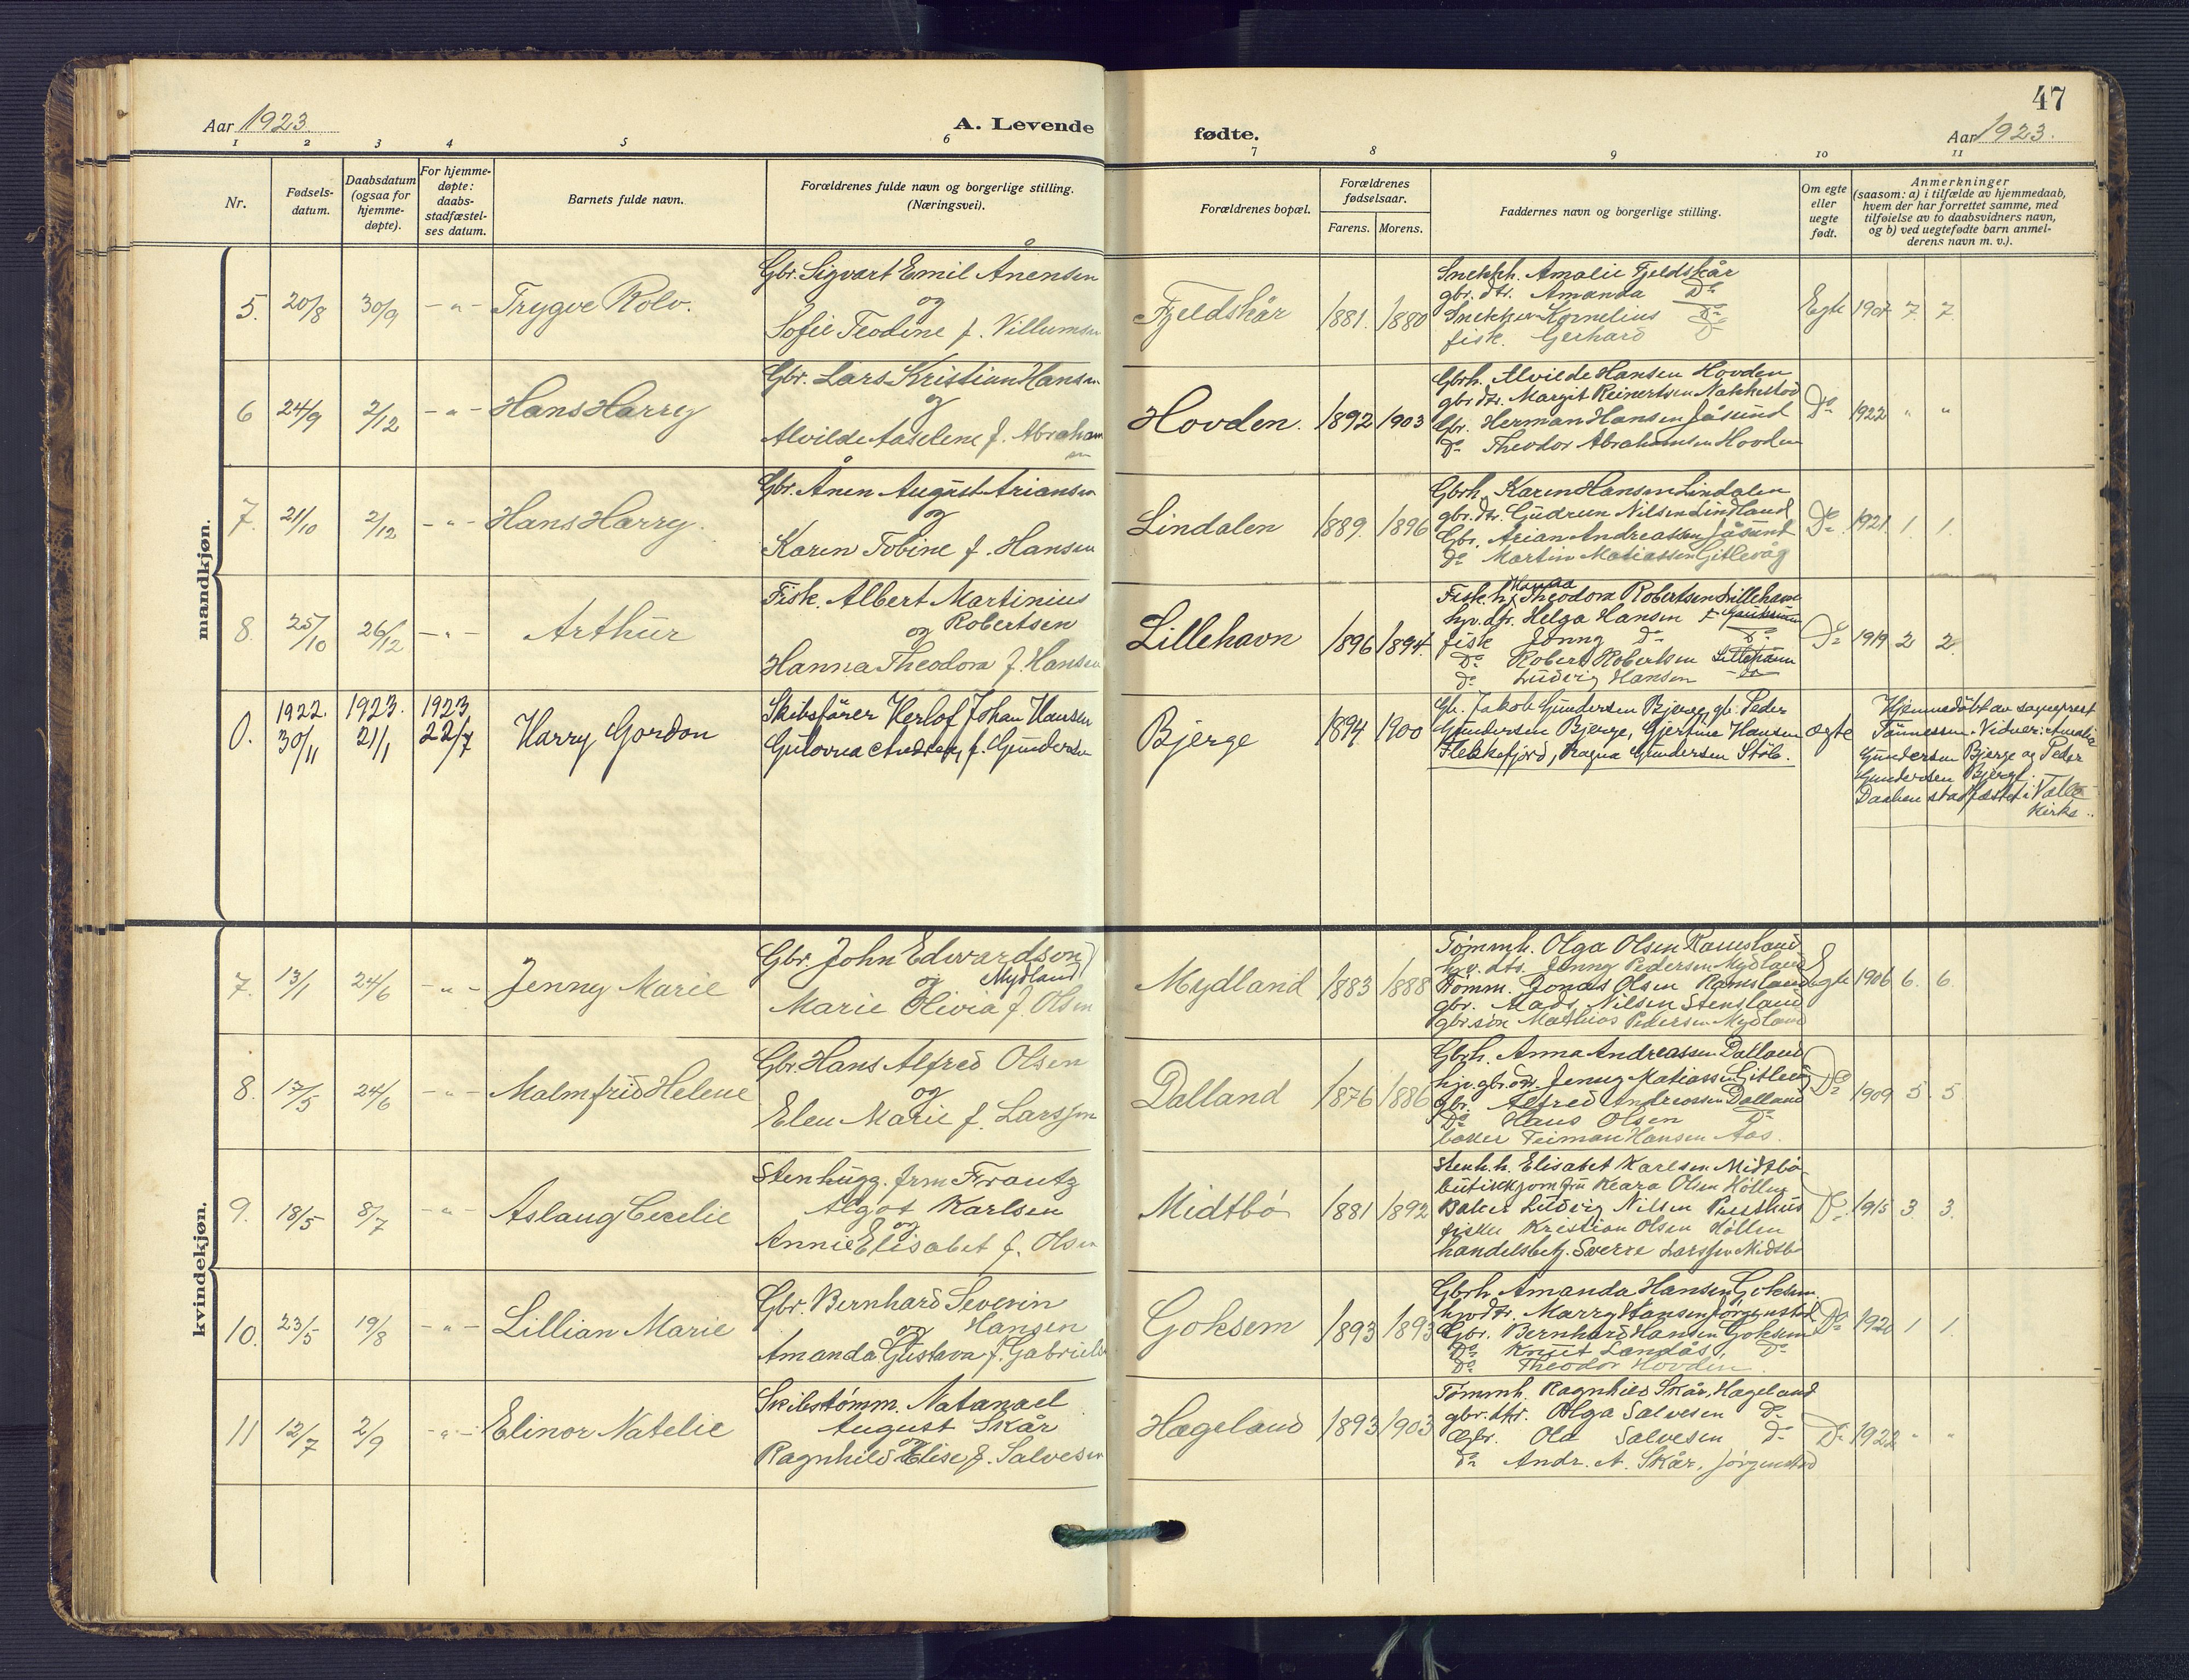 47
Aar 1923.
A. Levende
fødte.
Aar 1923.
1 2 3 4 5 6 7 8 9 10 11
Nr.
Fødsels-
datum.
Daabsdatum
(ogsaa for
hjemme-
døpte).
For hjemme-
døpte:
daabs-
stadfæstel-
ses datum.
Barnets fulde navn.
Forældrenes fulde navn og borgerlige stilling.
(Næringsvei).
Forældrenes bopæl.
Forældrenes
fødselsaar.
Farens. Morens.
Faddernes navn og borgerlige stilling.
Om egte
eller
uegte
født.
Anmerkninger
(saasom: a) i tilfælde av hjemmedaab,
hvem der har forrettet samme, med
tilføielse av to daabsvidners navn,
og b) ved uegtefødte barn anmel-
derens navn m. v.).
mandkjøn.
5. 20/8 30/9 - " - Trygve Rolv.
Gbr. Sigvart Emil Ånensen
og
Sofie Teodine f. Villumsen
Fjeldskår 1881. 1880
Snekkh. Amalie Fjeldskår
gbr. dtr. Amanda Do
Snekker Kornelius Do
fisk. Gerhard Do
Egte 1907 7. 7.
6 24/9 2/12 - " - Hans Harry
Gbr. Lars Kristian Hansen
og
Alvilde Aaselene f. Abraham
sen
Hovden. 1892 1903
Gbrh. Alvilde Hansen Hovden
gbr dtr. Margit Reinertsen Nakkestad
Gbr. Herman Hansen Jåsund
Do Theodor Abrahamsen Hovden
Do 1922 " "
7. 21/10 2/12 - " - Hans Harry.
Gbr. Ånen August Ariansen
og
Karen Tobine f. Hansen
Lindalen 1889. 1896
Gbrh. Karen Hansen Lindalen
gbr. dtr. Gudrun Nilsen Lindland
Gbr. Arian Andreassen Jåsund
do Martin Matiassen Gitlevåg
Do. 1921 1. 1.
8. 25/10 26/12 - " - Arthur
Fisk. Albert Martinius
og Robertsen
Hanna Theodora f. Hansen
Lillehavn 1896 1894.
Hanna
Fisk. h. Theodora Robertsen Lillehavn
hjv. dtr. Helga Hansen
fisk Jonny do
Do Robert Robertsen Lillehavn
do Ludvig Hansen do
Do 1919 2 2.
0. 1922. 30/11 1923. 21/1 1923 22/7 Harry Gordon
Skibsfører Herlof Johan Hansen
Gulovna Andrea f. Gundersen
Bjerge 1894. 1900
Gb. Jakob Gundersen Bjerge, gb. Peder
Gundersen Bjerge, Gjertine Hansen
Flekkefjord, Ragna Gundersen Støle.
ægte
Hjemmedøbt av sogneprest
Tønnessen. Vidner: Amalie
Gundersen Bjerge og Peder
Gundersen Bjerge.
Daaben stadfæstet i Valle
Kirke.
kvindekjøn.
7. 13/1 24/6 - " - Jenny Marie
Gbr. John Edwardson
og Mydland
Marie Olivia f. Olsen
Mydland 1883 1888
Tømmh. Olga Olsen Ramsland
hjv. dtr. Jenny Pedersen Mydland
Tømm. Jonas Olsen Ramsland
gbr. Mads Nilsen Stensland
gbr. søn Mathias Pedersen Mydland
Egte 1906 6. 6.
8. 17/5 24/6 - " - Malmfrid Helene
Gbr. Hans Alfred Olsen
og
Elen Marie f. Larssen
Dalland 1876 1886
Gbrh. Anna Andreassen Dalland
hjv. gbr. dtr. Jenny Matiassen Gitlevåg
gbr. Alfred Andreassen Dalland
Do Hans Olsen Do
baker Teiman Hansen Aas.
Do 1909 5 5.
9. 18/5 8/7 - " - Aslaug Cecelie
Stenhugg. frm Frantz
Algot Karlsen
og
Annie Elisabet f. Olsen
Midtbø 1881 1892
Stenh.h. Elisabet Karlsen Midtbø
butikkjomfru Keara Olsen Høllen
Baker Ludvig Nilsen Presthus
fisker Kristian Olsen Høllen
handelsbetj. Sverre Larssen Midtbø
Do. 1915 3. 3.
10. 23/5 19/8 - " - Lillian Marie
Gbr. Bernhard Severin
og Hansen
Amanda Gustava f. Gabriels
Goksem 1893 1893
Gbrh Amanda Hansen Goksem
hjv dtr. Marry Hansen Jørgenstad
Gbr. Bernhard Hansen Goksem
Do Knut Landås. Do
Do Theodor Hovden.
Do 1920 1 1.
11 12/7 2/9 - " - Elinor Natelie
Skibstømm. Natanael
August Skår
og
Ragnhild Elise f. Salvesen
Hægeland 1893 1903
Tømmh. Ragnhild Skår, Hægeland
gbr. dtr. Olga Salvesen Do
Gbr. Ola Salvesen do
Do Andr. A. Skår, Jørgenstad
Do 1922 " "